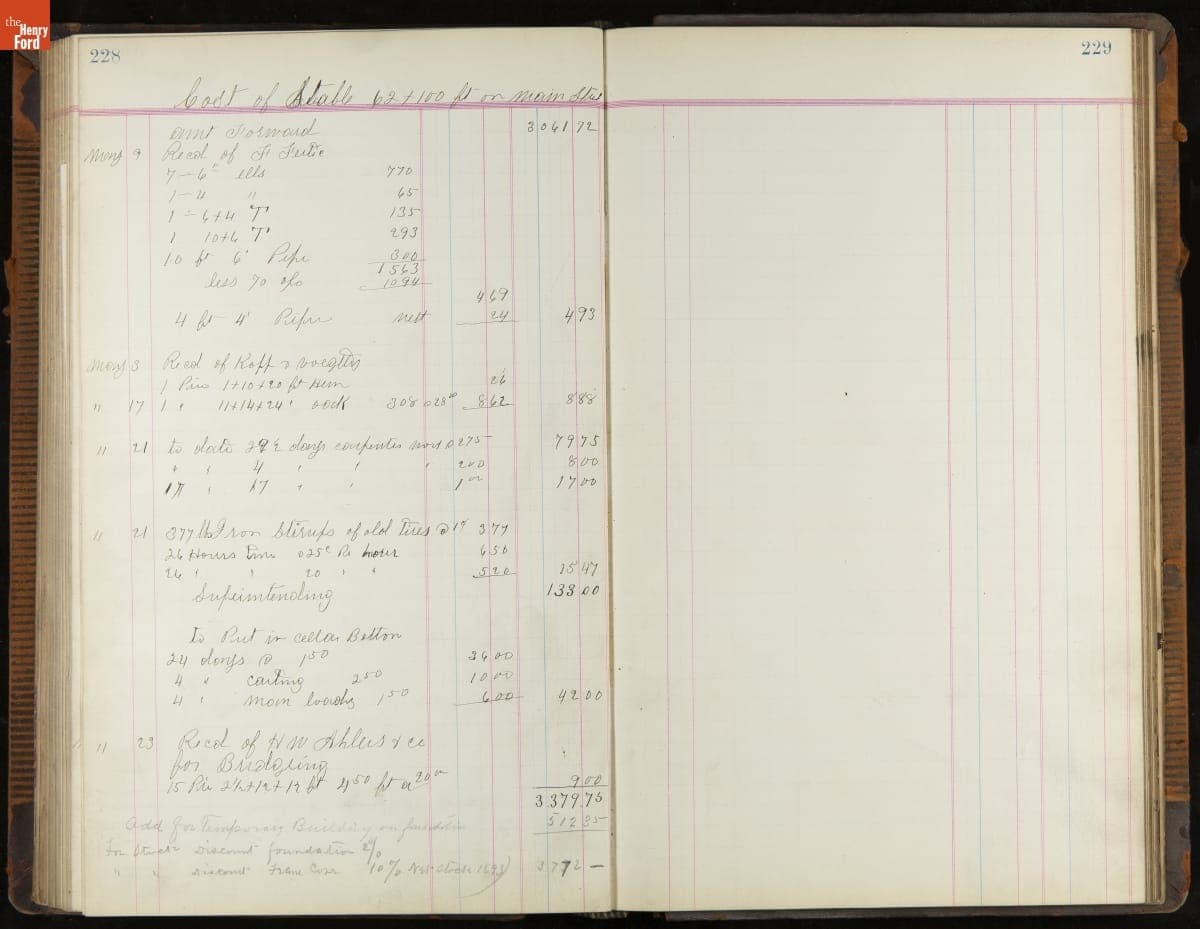 the Henry Ford
228
229
Cost of Stable 62+100 ft on main Stree
amt Forward 3061 72
9 Recd of F
7–6" ells 770
1–4 " 65
1–6+4 "T" 135
1 10+6 "T" 293
10 ft 6" Pipe 300
1563
less 70 o/o 1094
469
4 ft 4" Pipe nett 24 493
3 Recd of Koff &
1 Pin 1+10+20 ft Hem 26
" 17 1 " 11+14+24 " 308 @ 28 00 862 888
" 21 to date 29 ½ days carpenter work @ 275 7975
" " 4 " " " 200 800
17 " 17 " " 1 00 1700
" 21 377 lb Iron Stirups of old tires @ 1c 377
26 Hours time @ 25c Pr hour 650
26 " " 20 " " 520 1547
Superintending 133 00
to Put in cellar Bottom
24 days @ 1 50 3600
4 " carting 2 50 1000
4 " man loading 1 50 600 4200
" 23 Recd of H W Ahlers & co
for Bridging
15 Pin 2½+12+12 ft 450 ft a 20 00 900
3379 75
Add for Temporary Building on foundation 512 35
For Stock Discount foundation 2%
" " Discount Frame Cover 10% Net Stock 1893) 3772 —